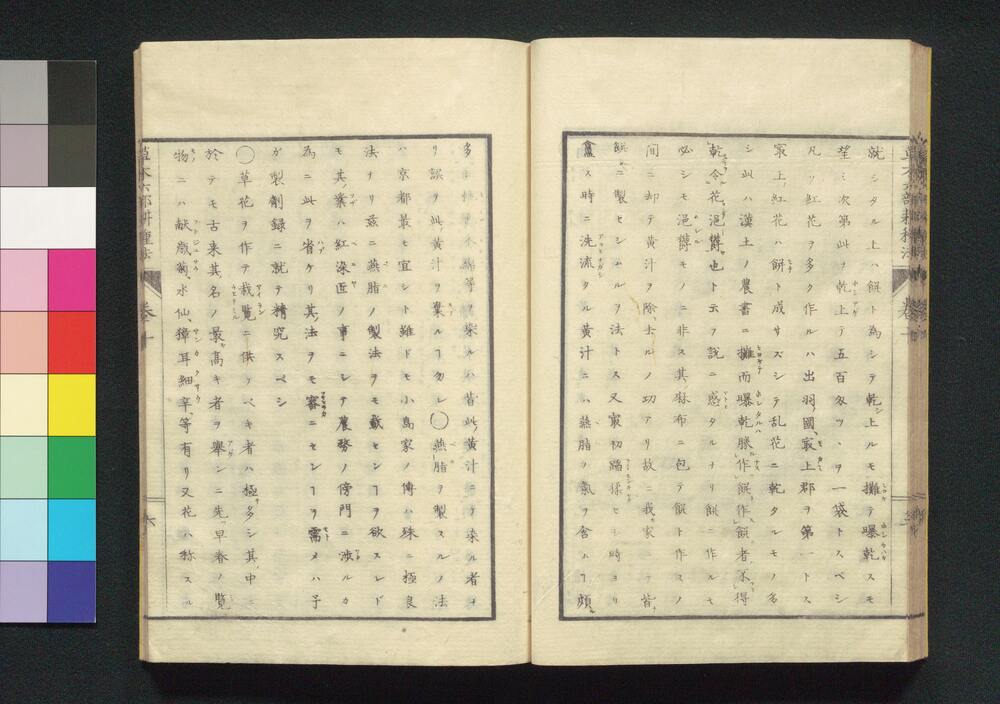 就シタル上ハ餅ト為シテ乾上ルモ攤テ曝乾スモ
望ミ次第此ヲ乾上テ五百匁ツヽヲ一袋トスベシ
凡ソ紅花ヲ多ク作ルハ出羽國最上郡ヲ第一トス
最上紅花ハ餅ト成サズシテ乱花ニ乾タルモノ多
シ此ハ漢土ノ農書ニ攤而曝乾勝作餅作餅者不得
乾令花浥欝也ト云フ説ニ惑タルナリ餅ニ作ルモ
必シモ浥欝モノニ非ス其麻布ニ包テ餅ト作スノ
間ニ却テ黄汁ヲ除去ルノ功アリ故ニ我家ニテ皆
餅ニ製セシムルヲ法トス又最初蹈揉セシ時ヨリ
ス時ニ洗流タル黄汁ニハ燕脂ノ氣ヲ含ムヿ頗
多シ 木綿等ヲ染ルハ皆此黄汁ニテ染ル者ナ
リ誤テ此黄汁ヲ棄ルヿ勿レ○燕脂ヲ製スルノ法
ハ京都最モ宜シト雖ドモ小島家ノ傳ハ殊ニ極良
法ナリ茲ニ燕脂ノ製法ヲモ載センヿヲ欲スレド
モ其業ハ紅染匠ノ事ニシテ農務ノ傍門ニ渉ルカ
為ニ此ヲ省ケリ其法ヲモ審ニセンヿヲ需メハ子
ガ製劑録ニ就テ精究スベシ
○草花ヲ作テ栽覧ニ供フベキ者ハ極多シ其中ニ
於テモ古来其名ノ最高キ者ヲ擧ンニ先早春ノ覧
物ニハ献歳菊水仙獐耳細辛等有リ又花ハ称スル
草木六部耕種法